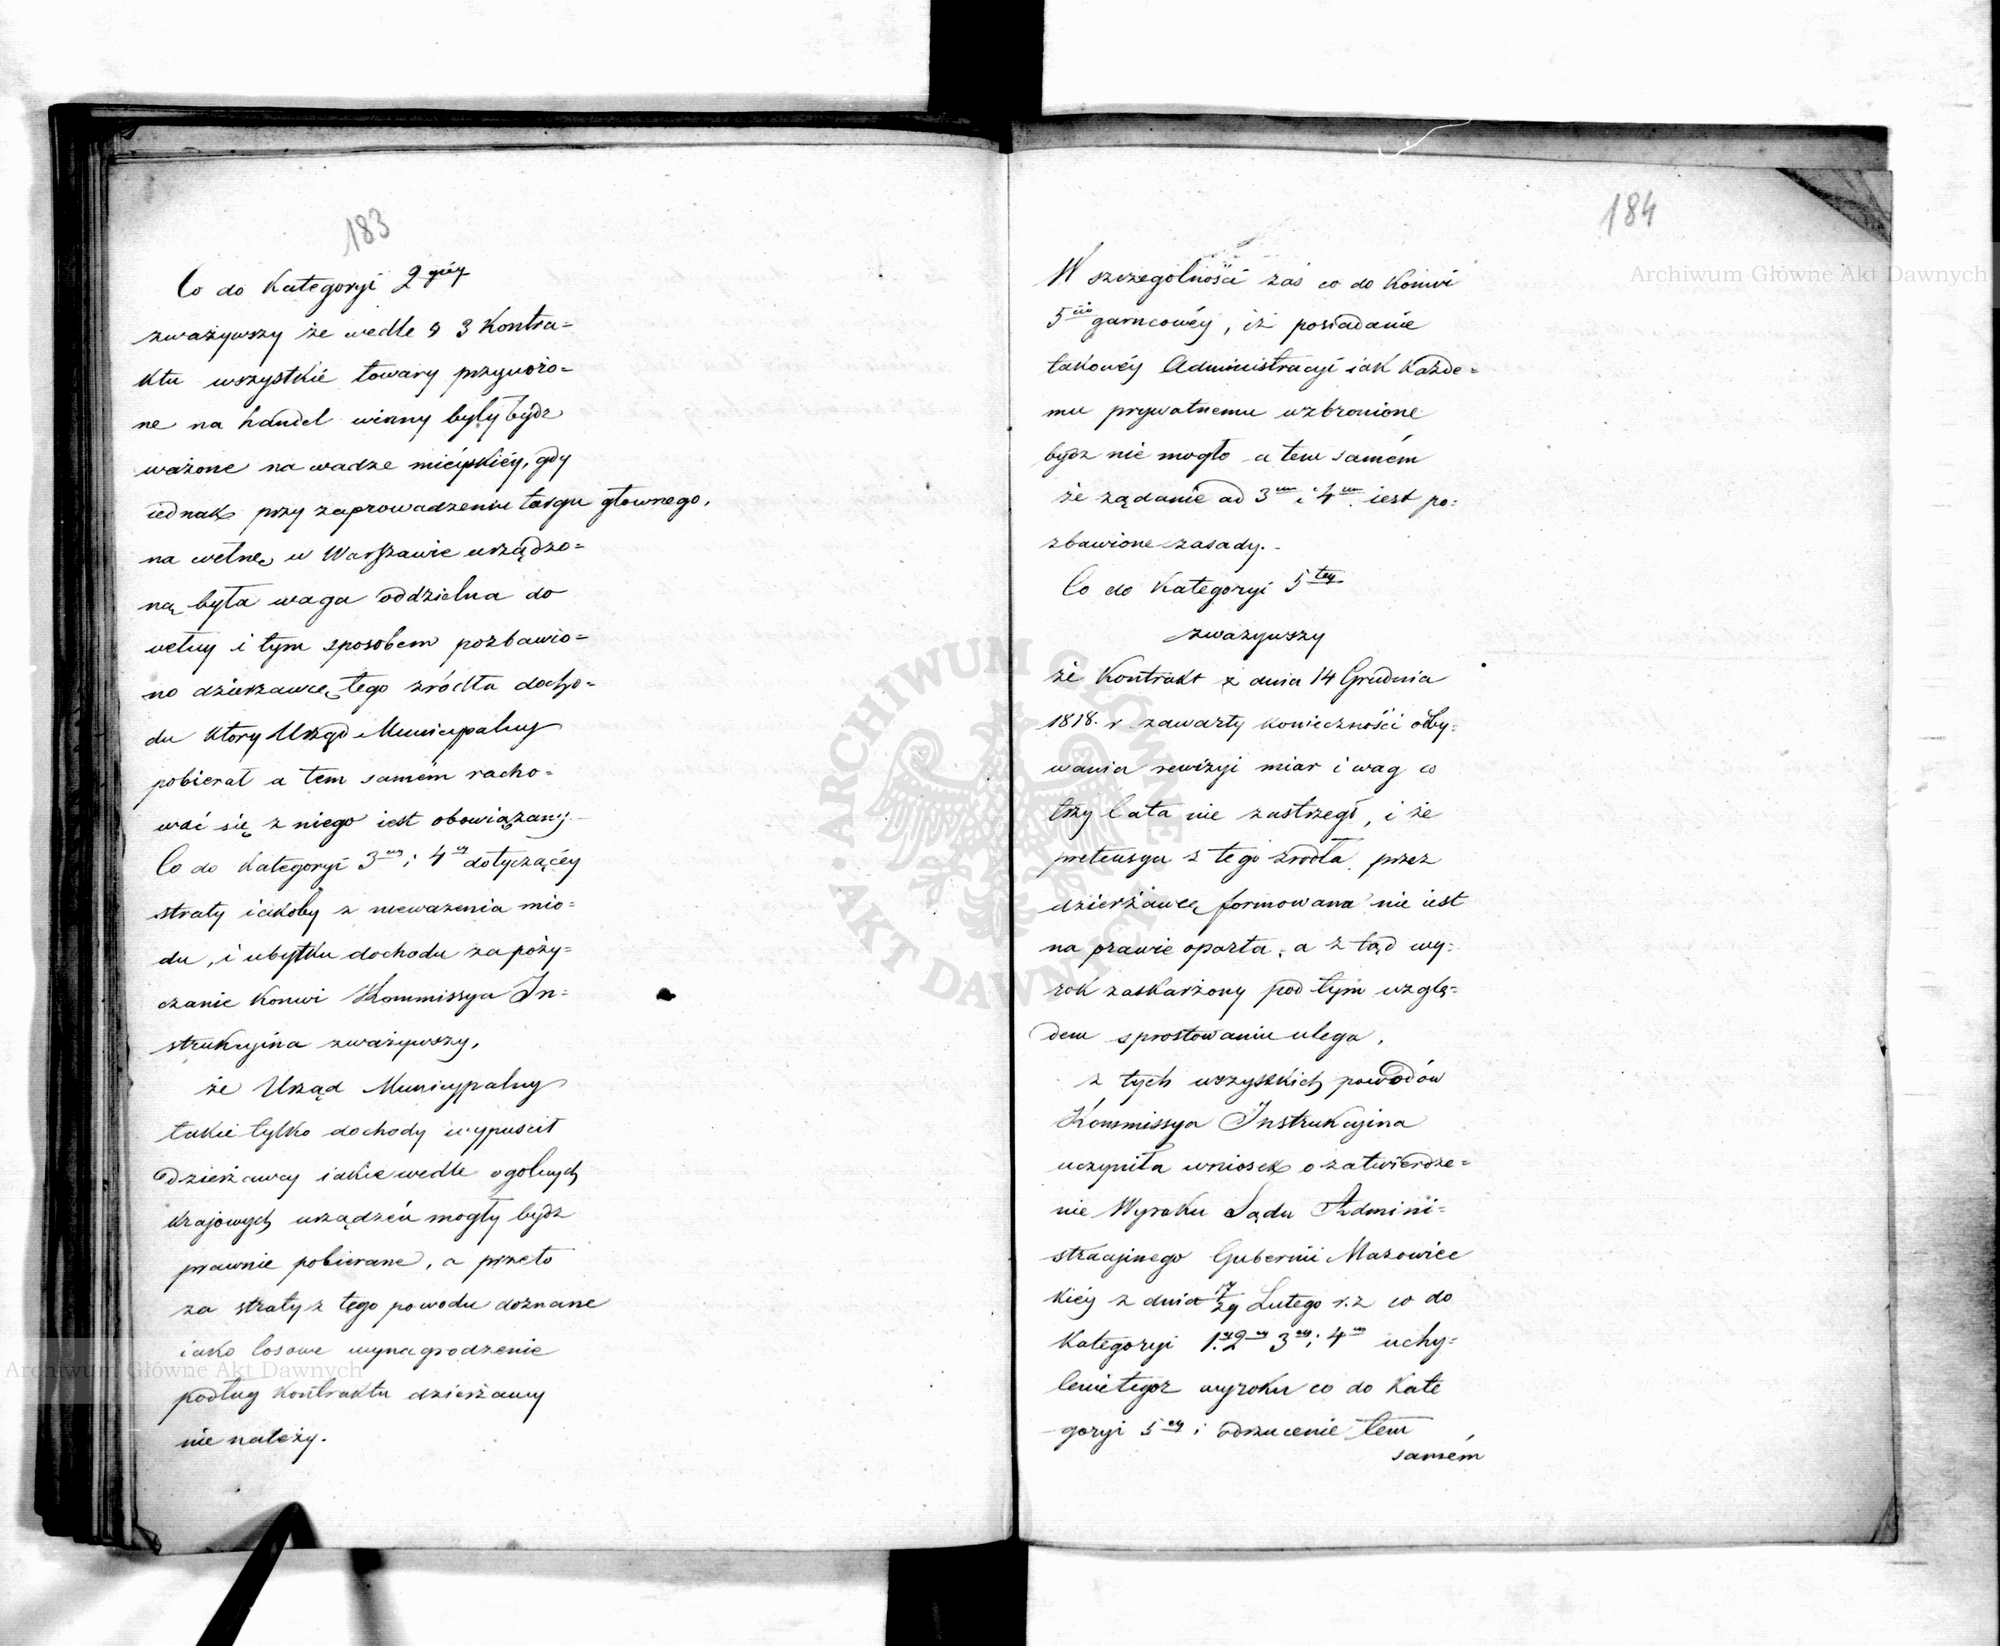 183
Co do Kategoryi 2giéy
zważywszy że wedle § 3 Kontra=
ktu wszystkie towary przywożo=
ne na handel winny były bydź
ważone na wadze mieyskiéy, gdy
iednak przy zaprowadzeniu targu głownego,
na wełnę w Warszawie urządzo=
ną była waga oddzielna do
wełny i tym sposobem pozbawio=
no dzierzawcę tego źródła docho=
du ktory Urząd Municypalny
pobierał a tem samém racho=
wać się z niego iest obowiązany.
Co do Kategoryi 3ey i 4ey dotyczącéy
straty iakoby z nieważenia mio=
du, i ubytku dochodu za poży=
czanie Konwi Kommissya In=
strukcyina zważywszy,
że Urząd Municypalny
takie tylko dochody wypuscił
Dzierżawcy iakie wedle ogolnych
Krajowych urządzeń mogły bydź
prawnie pobierane, a przeto
za straty z tego powodu doznane
iako losowe wynagrodzenie
podług Kontraktu dzierżawy
nie należy.
184
W szczegolności zaś co do Konwi
5cio garncowéy, iż posiadanie
takowéy Administracyi iak Każde=
mu prywatnemu wzbronione
bydz nie mogło a tem samém
że żądanie ad 3um i 4um iest po=
zbawione zasady.
Co do Kategoryi 5tey
zważywszy
że Kontrakt z dnia 14 Grudnia
1818. r zawarty konieczności odby=
wania rewizyi miar i wag co
trzy lata nie zastrzegł, i że
pretensya z tego źrodła przez
dzierżawcę formowana nie iest
na prawie oparta, a z tąd wy=
rok zaskarżony pod tym wzglę=
dem sprostowaniu ulega,
z tych wszystkich powodów
Kommissya Instrukcyina
uczyniła wniosek o zatwierdze=
nie Wyroku Sądu Admini=
stracyinego Gubernii Mazowiec
kiéy z dnia 17/29 Lutego r. z co do
Kategoryi 1ey 2ey 3ey i 4ey uchy=
lenie tegoż wyroku co do Kate
goryi 5ey i odrzucenie tem
samém
Archiwum Główne Akt Dawnych
Archiwum Główne Akt Dawnych
ARCHIWUM GŁÓWNE AKT DAWNYCH